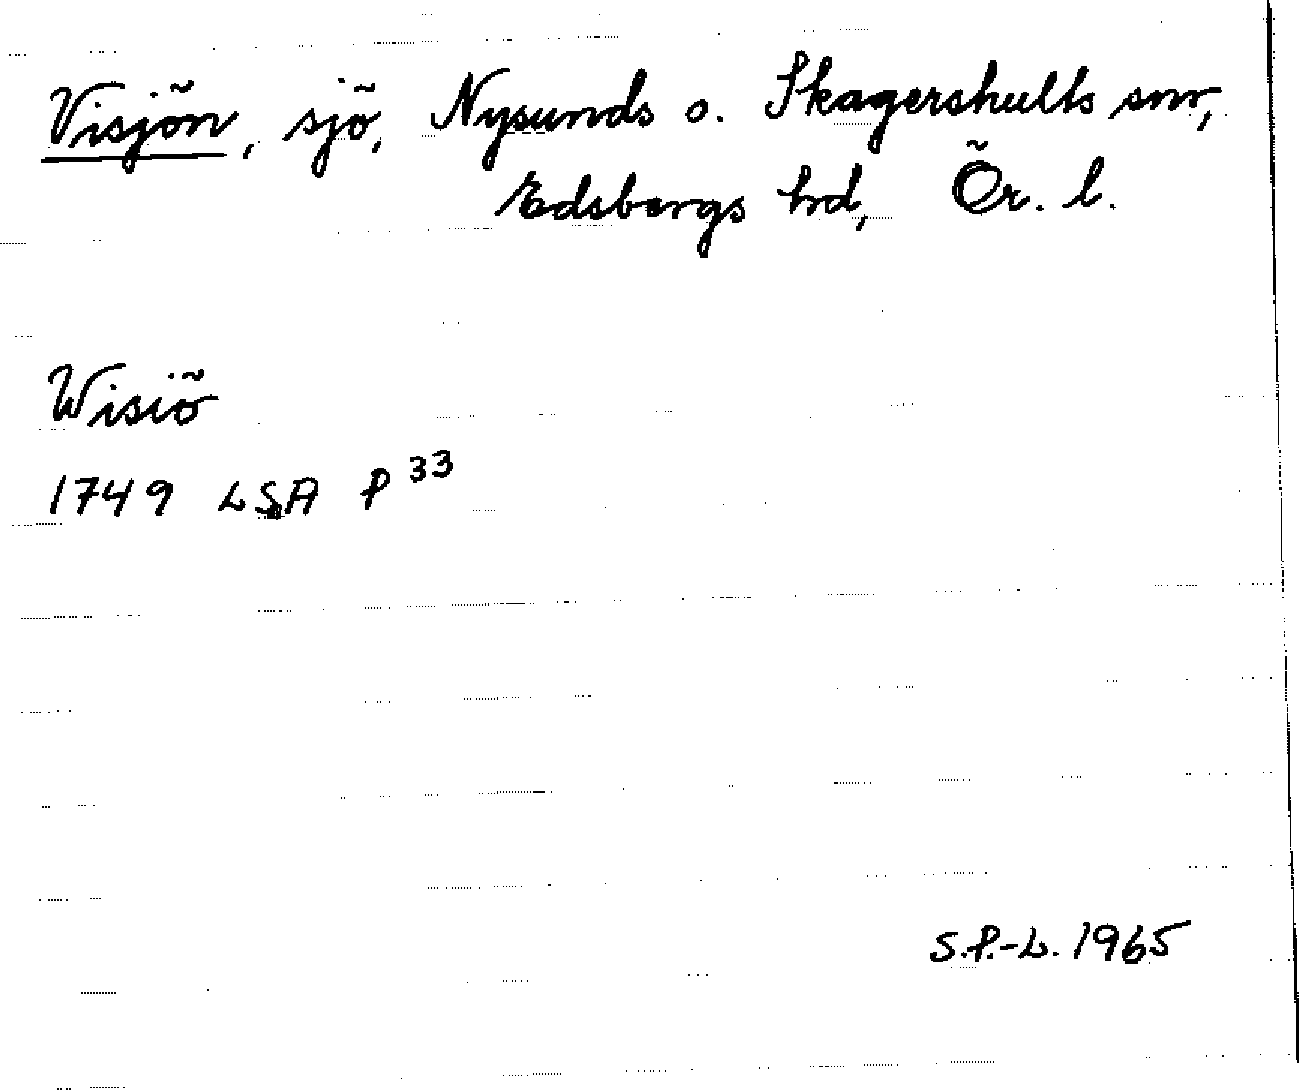 Visjön, sjö, Nysunds o. Skagershults snr,
Edsbergs hd, Ör. l.
Wisiö
1749 LSA P 33
S.P.-L. 1965